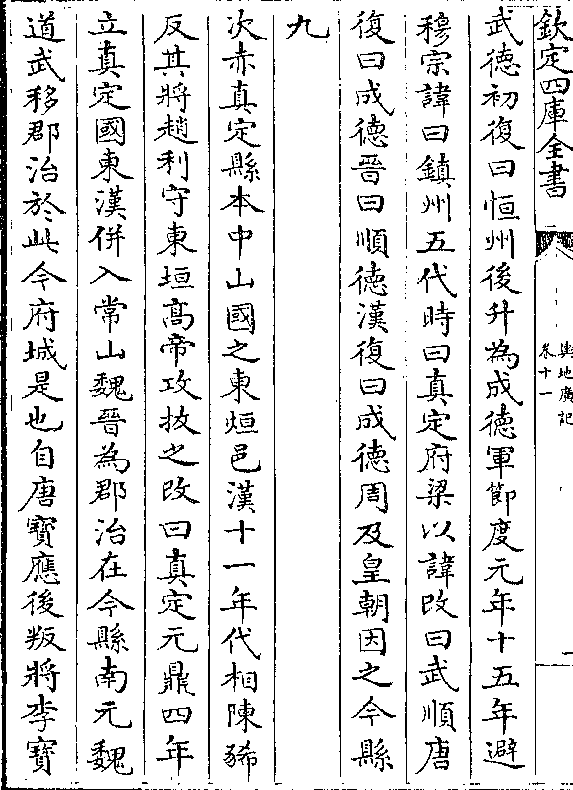 欽定四庫全書
輿地廣記
卷十一
一
武德初復曰恒州後升為成德軍節度元年十五年避
穆宗諱曰鎮州五代時曰真定府梁以諱改曰武順唐
復曰成德晉曰順德漢復曰成德周及皇朝因之今縣
九
次赤真定縣本中山國之東烜邑漢十一年代相陳豨
反其將趙利守東垣高帝攻拔之改曰真定元鼎四年
立真定國東漢併入常山魏晉為郡治在今縣南元魏
道武移郡治於此今府城是也自唐寶應後叛將李寶